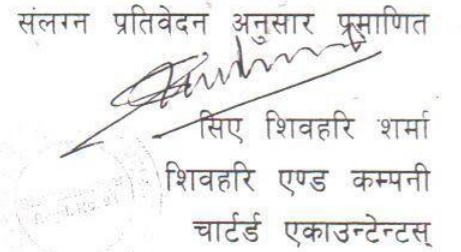 संलग्न प्रतिवेदन अनुसार प्रमाणित
सिए शिवहरि शर्मा
शिवहरि एण्ड कम्पनी
चार्टर्ड एकाउन्टेन्टस्